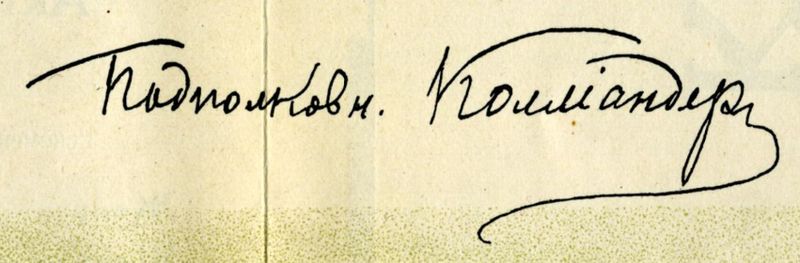 Подполковн. Колліандер